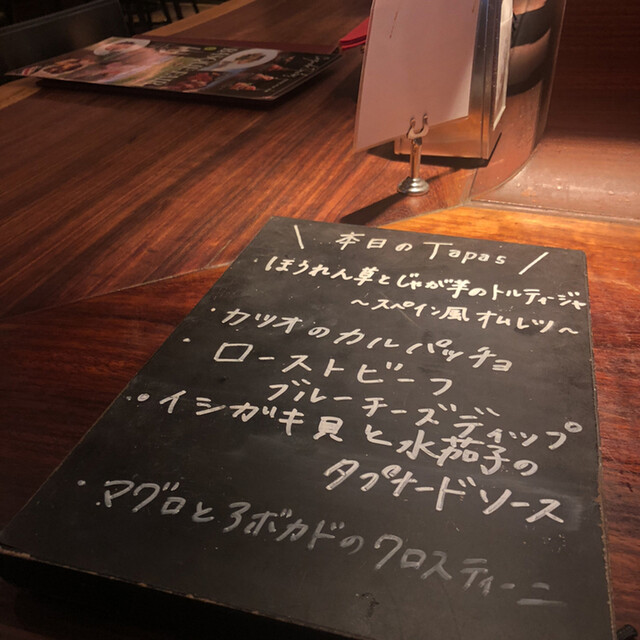 \ 本日のTapas /
・ほうれん草とじゃが芋のトルティージャ
〜スペイン風オムレツ〜
・カツオのカルパッチョ
・ローストビーフ
ブルーチーズディップ
・イシガキ貝と水茄子の
タプナードソース
・マグロとアボカドのクロスティーニ